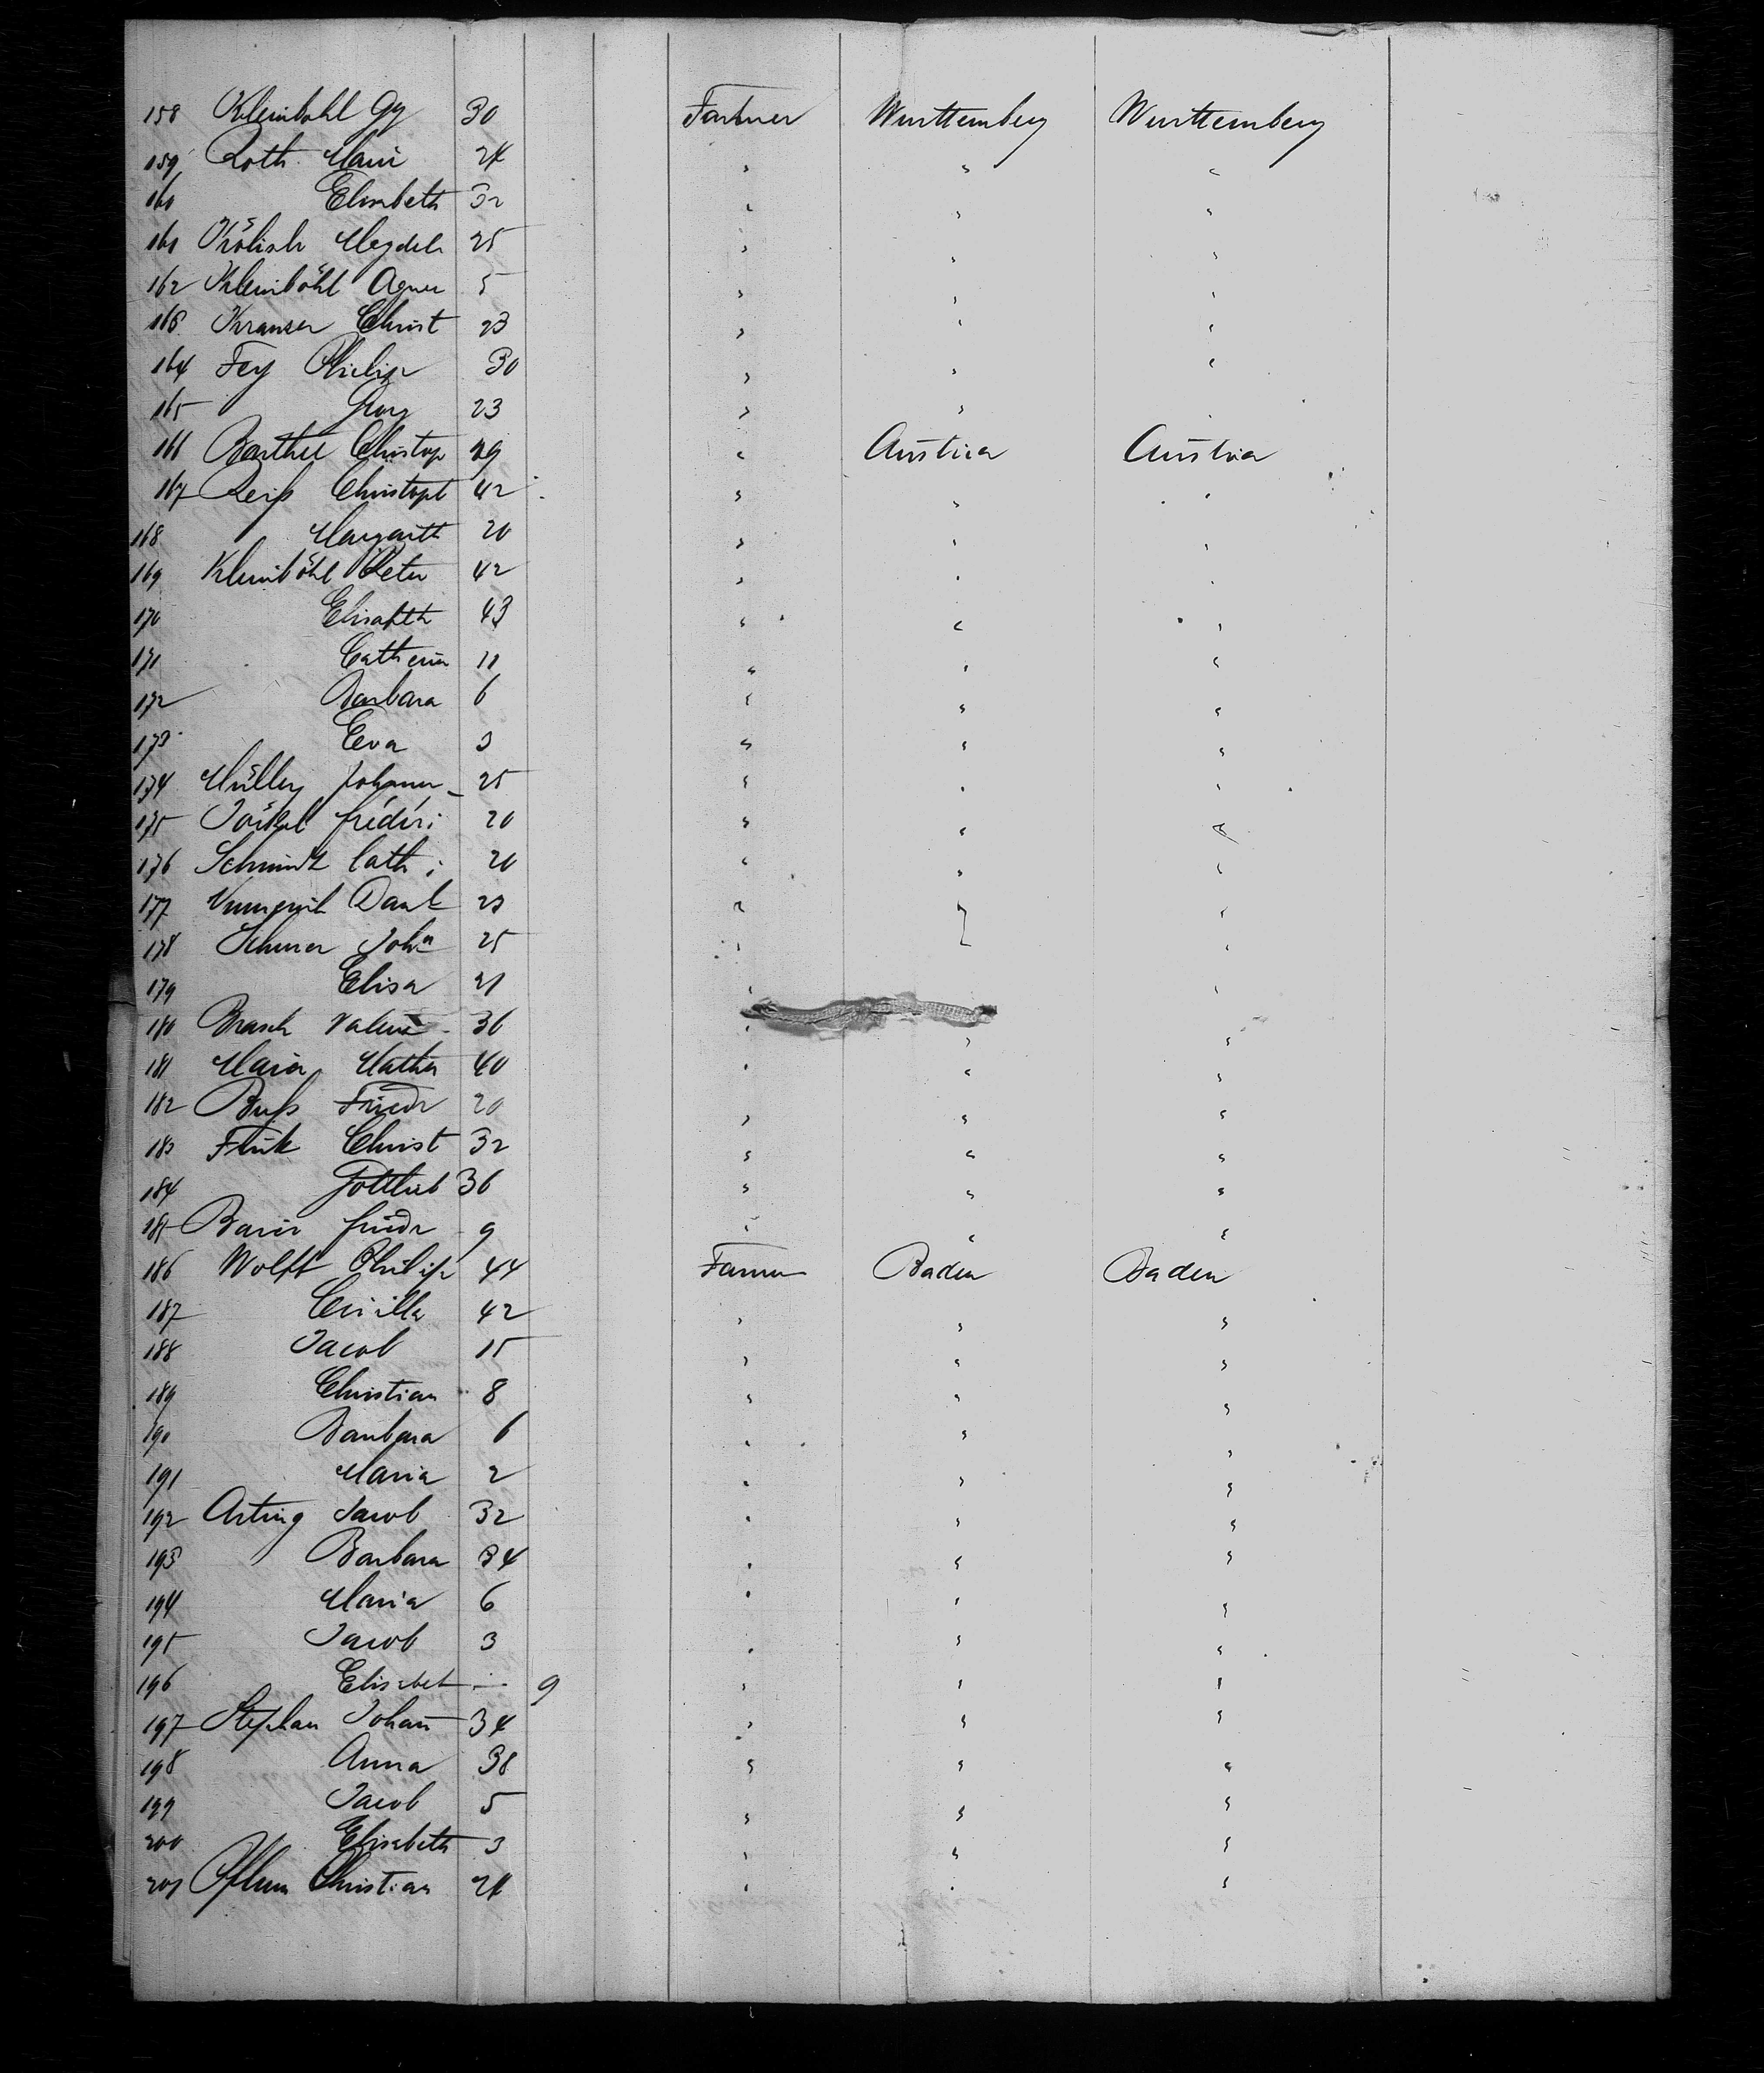 158 Kleinbohl Gg 30 Farmer Wurttemberg Wurttemberg
159 Roth Marie 24 " " "
160 Elisabeth 32 " " "
161 Magdal 25 " " "
162 Kleinböhl Agnes 5 " " "
163 Kranser Christ 23 " " "
164 Fey Philip 30 " " "
165 Georg 23 " " "
166 Barthel Christop 29 " Austria Austria
167 Reiß Christoph 42 " " "
168 Margarith 20 " " "
169 Kleinböhl Peter 42 " " "
170 Elisabeth 43 " " "
171 Catherin 11 " " "
172 Barbara 6 " " "
173 Eva 3 " " "
174 Müller Johann 25 " " "
175 fréderi 20 " " "
176 Schmidt Cath: 20 " " "
177 23 " " "
178 Scherer Joh 25 " " "
179 Elisa 21 " "
180 Brasch 36 " " "
181 Maier Mathia 40 " " "
182 Buß Friedr 20 " " "
183 Christ 32 " " "
184 Gottlieb 36 " " "
185 friedr 9 " " "
186 Wolff Philip 44 Farmer Baden Baden
187 42 " " "
188 Jacob 15 " " "
189 Christian 8 " " "
190 Barbara 6 " " "
191 Maria 2 " " "
192 Arting Jacob 32 " " "
193 Barbara 34 " " "
194 Maria 6 " " "
195 Jacob 3 " " "
196 Elisabet — 9 " " "
197 Stephan Johan 34 " " "
198 Anna 38 " " "
199 Jacob 5 " " "
200 Elisabeth 3 " " "
201 Pflum Christian 24 " " "